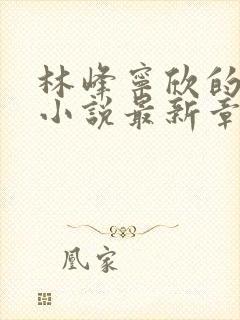 林峰寧欣的
小說最新章
凰家